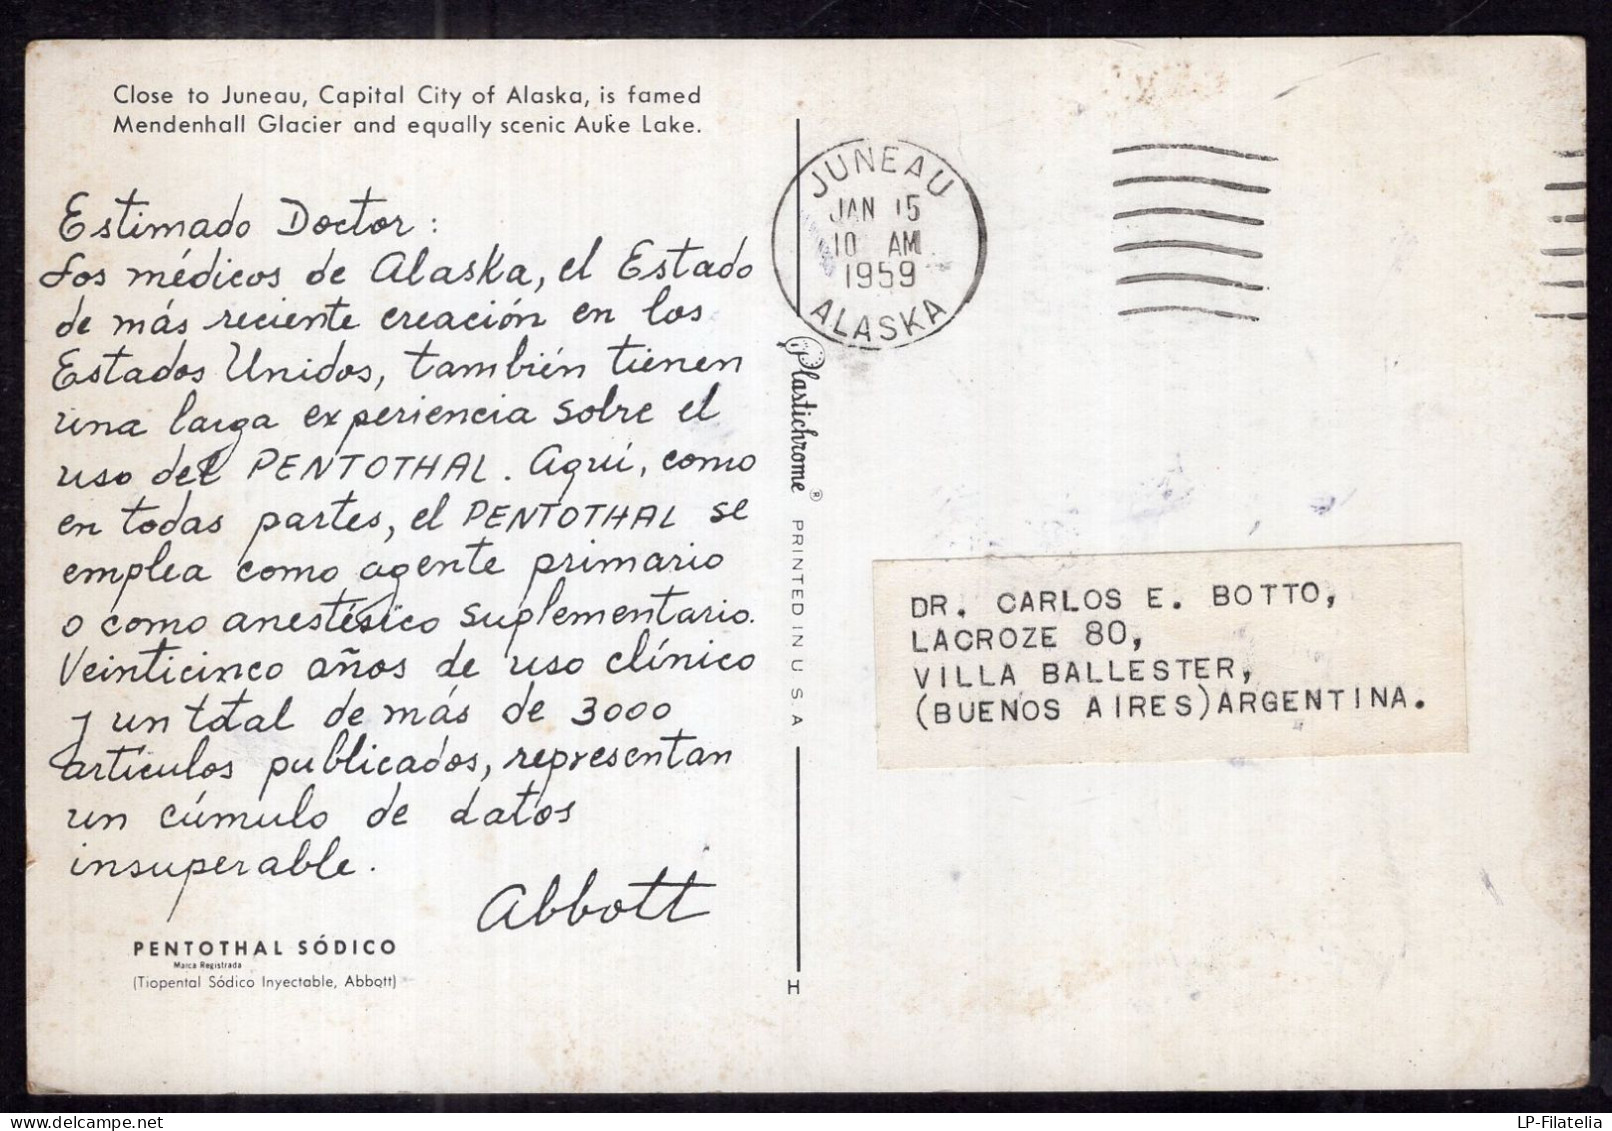 Close to Juneau, Capital City of Alaska, is famed
Mendenhall Glacier and equally scenic Auke Lake.
Estimado Doctor:
Los médicos de Alaska, el Estado
de más reciente creación en los
Estados Unidos, también tienen
una larga experiencia sobre el
uso del PENTOTHAL. Aquí, como
en todas partes, el PENTOTHAL se
emplea como agente primario
o como anestésico suplementario.
Veinticinco años de uso clínico
y un total de más de 3000
artículos publicados, representan
un cúmulo de datos
insuperable.
Abbott
PENTOTHAL SÓDICO
Marca Registrada
(Tiopental Sódico Inyectable, Abbott)
Plastichrome® PRINTED IN U.S.A
H
JUNEAU
JAN 15
10 AM
1959
ALASKA
DR. CARLOS E. BOTTO,
LACROZE 80,
VILLA BALLESTER,
(BUENOS AIRES)ARGENTINA.
www.delcampe.net
LP-Filatelia